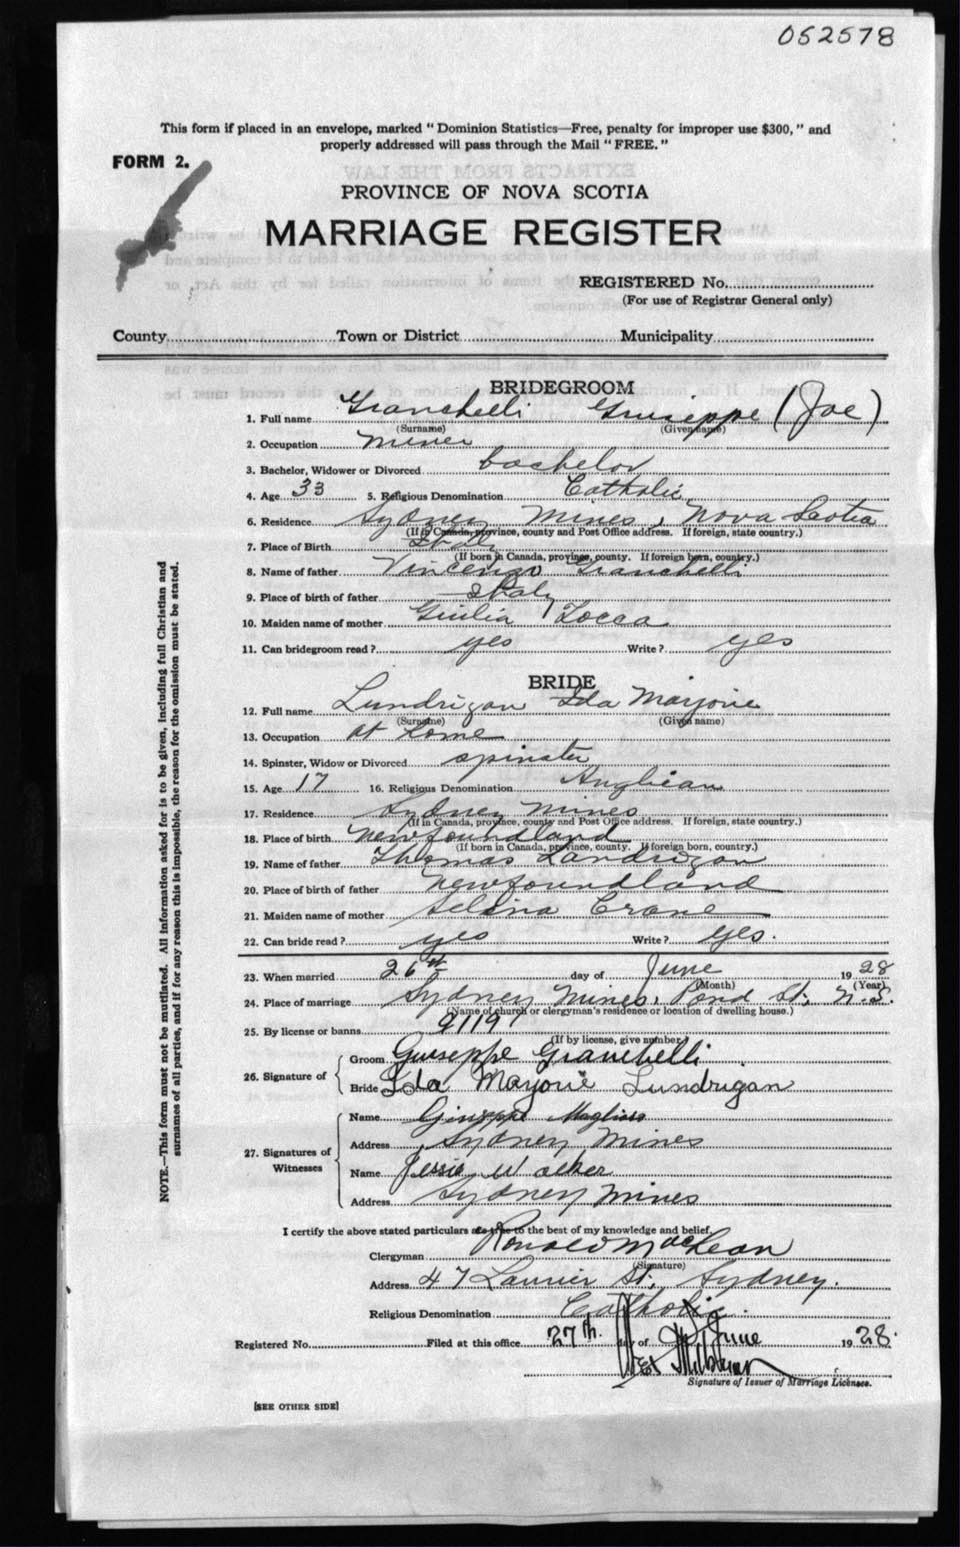 052578
This form if placed in an envelope, marked "Dominion Statistics—Free, penalty for improper use $300," and
properly addressed will pass through the Mail "FREE."
FORM 2.
PROVINCE OF NOVA SCOTIA
MARRIAGE REGISTER
REGISTERED No.
(For use of Registrar General only)
County Town or District Municipality
BRIDEGROOM
1. Full name Granchelli Giuseppe (Joe)
(Surname) (Given name)
2. Occupation miner
3. Bachelor, Widower or Divorced bachelor
4. Age 33 5. Religious Denomination Catholic
6. Residence Sydney Mines, Nova Scotia
(If in Canada, province, county and Post Office address. If foreign, state country.)
7. Place of Birth Italy
(If born in Canada, province, county. If foreign born, country.)
8. Name of father Vincenzo Granchelli
9. Place of birth of father Italy
10. Maiden name of mother Giulia Zocca
11. Can bridegroom read? yes Write? yes
BRIDE
12. Full name Lundrigan Ida Marjorie
(Surname) (Given name)
13. Occupation at home
14. Spinster, Widow or Divorced spinster
15. Age 17 16. Religious Denomination Anglican
17. Residence Sydney Mines
(If in Canada, province, county and Post Office address. If foreign, state country.)
18. Place of birth Newfoundland
(If born in Canada, province, county. If foreign born, country.)
19. Name of father Thomas Landrigan
20. Place of birth of father Newfoundland
21. Maiden name of mother Selena Crane
22. Can bride read? yes Write? yes.
23. When married 26th day of June 1928
(Month) (Year)
24. Place of marriage Sydney Mines, Pond St, N.S.
(Name of church or clergyman's residence or location of dwelling house.)
25. By license or banns 91197
(If by license, give number)
26. Signature of
Groom Giuseppe Granchelli
Bride Ida Marjorie Lundrigan
27. Signatures of Witnesses
Name Giuseppe
Address Sydney Mines
Name Jessie Walker
Address Sydney Mines
I certify the above stated particulars are true to the best of my knowledge and belief.
Clergyman Ronald MacLean
(Signature)
Address 47 Laurier St, Sydney.
Religious Denomination Catholic.
Registered No. Filed at this office 27th. day of June 1928.
Signature of Issuer of Marriage Licenses.
[SEE OTHER SIDE]
NOTE.—This form must not be mutilated. All information asked for is to be given, including full Christian and
surnames of all parties, and if for any reason this is impossible, the reason for the omission must be stated.